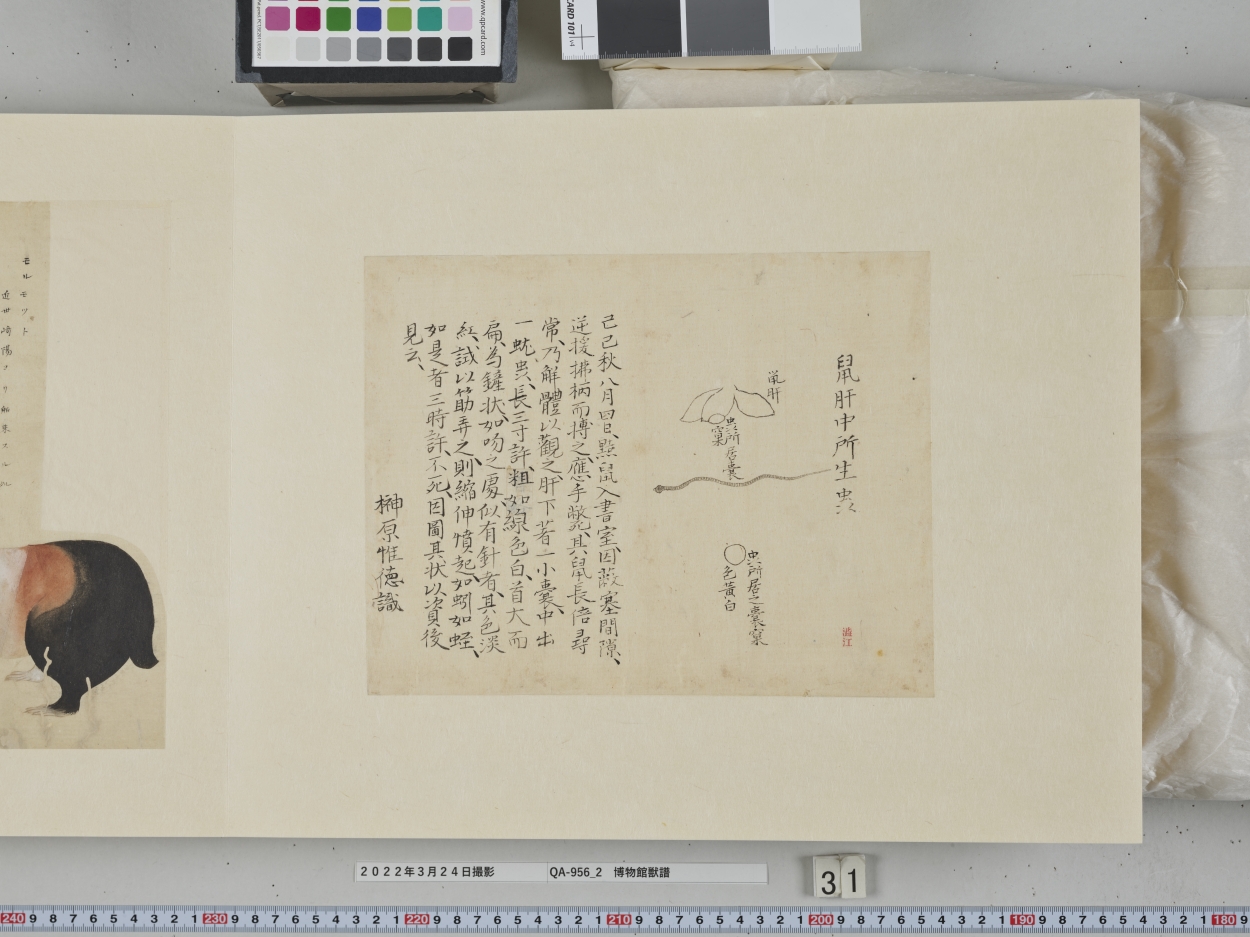 鼠肝中所生虫状
鼠肝
虫所居嚢
窠
虫所居之嚢窠
色黄白
己巳秋八月四日、點鼠入書室、因蔽塞間隙、
逆援拂柄而搏之、應手斃、其鼠長倍尋
常、乃解體以觀之、肝下著一小嚢、中出
一蚘虫、長三寸許、粗如線、色白、首大而
扁、為鏟状、如吻之處、似有針者、其色淡
紅、試以筯弄之、則縮伸憤起、如蚓如蛭、
如是者三時許、不死、因圖其状、以資後
見云、
榊原惟德識
モルモツト
QPCARD 101 v4
www.qpcard.com
2022年3月24日撮影
QA-956_2 博物館獣譜
31
240 9 8 7 6 5 4 3 2 1 230 9 8 7 6 5 4 3 2 1 220 9 8 7 6 5 4 3 2 1 210 9 8 7 6 5 4 3 2 1 200 9 8 7 6 5 4 3 2 1 190 9 8 7 6 5 4 3 2 1 180 9